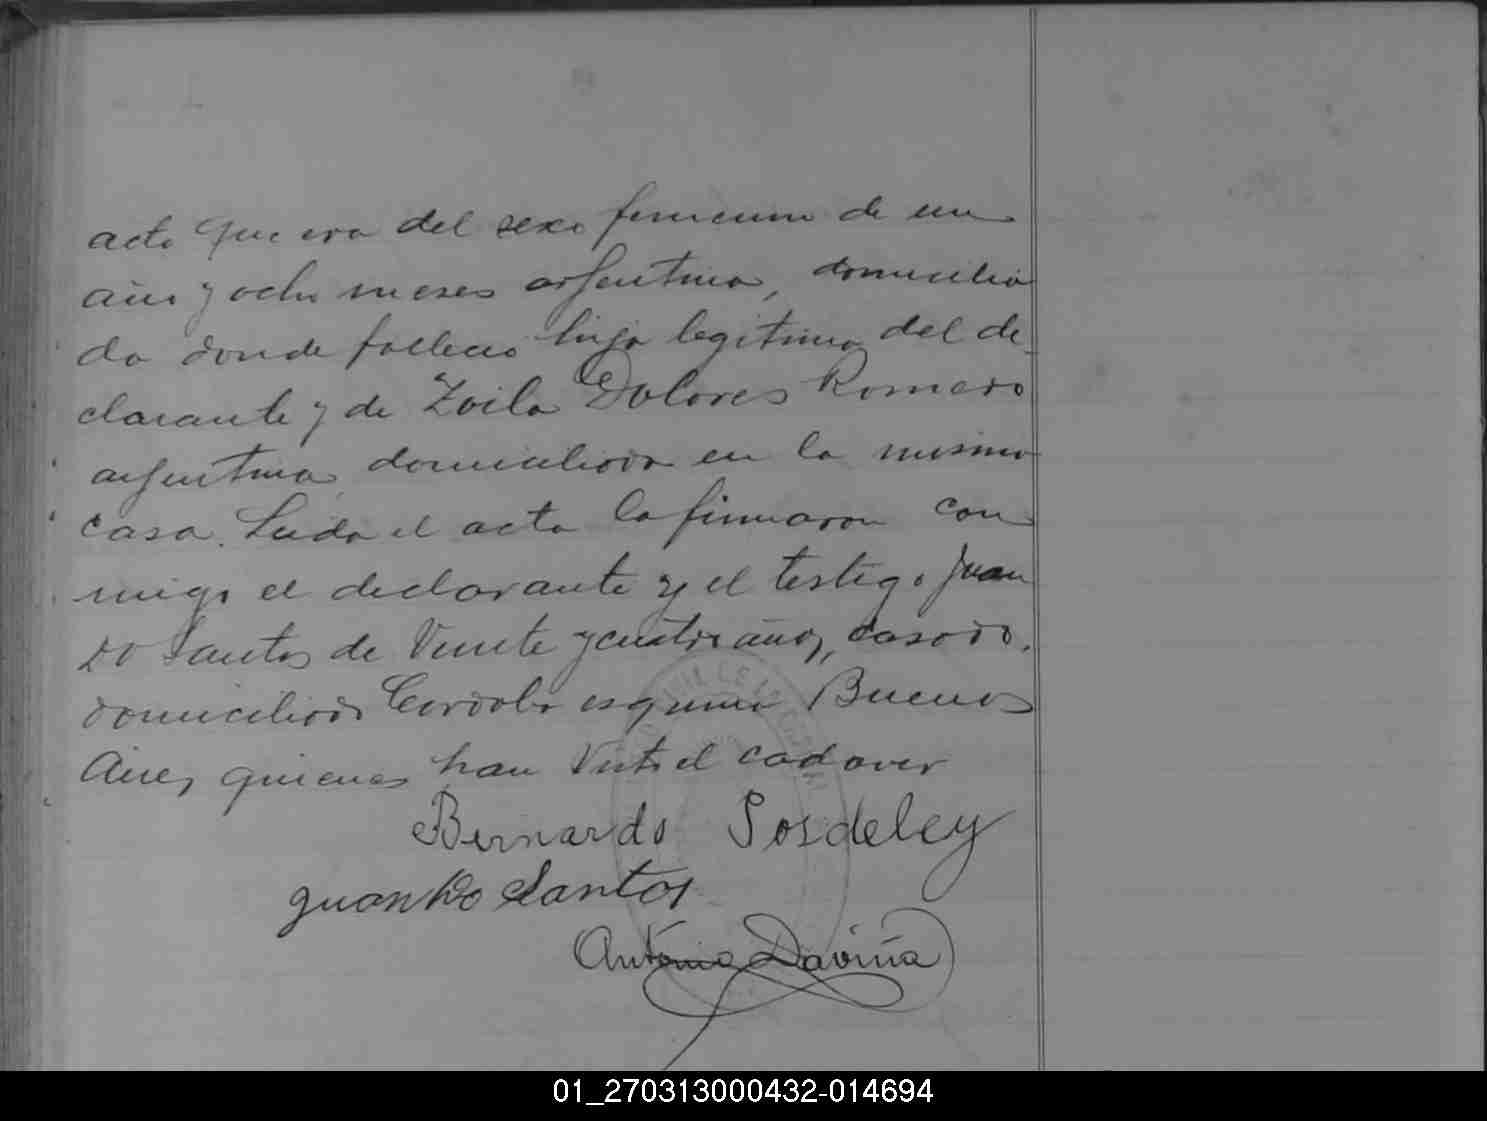 acto que era del sexo femenino de un
año y ocho meses argentina, domicilia
da donde fallecio hija legitima del de-
clarante y de Zoila Dolores Romero
argentina domiciliada en la misma
casa. Leida el acta la firmaron con
migo el declarante y el testigo Juan
Do Santos de Veinte y cuatro años, casado,
domiciliado Cordoba esquina Buenos
Aires quienes han Visto el cadaver
Bernardo Posdeley
Juan Do Santos
Antonio Daviña
01_270313000432-014694